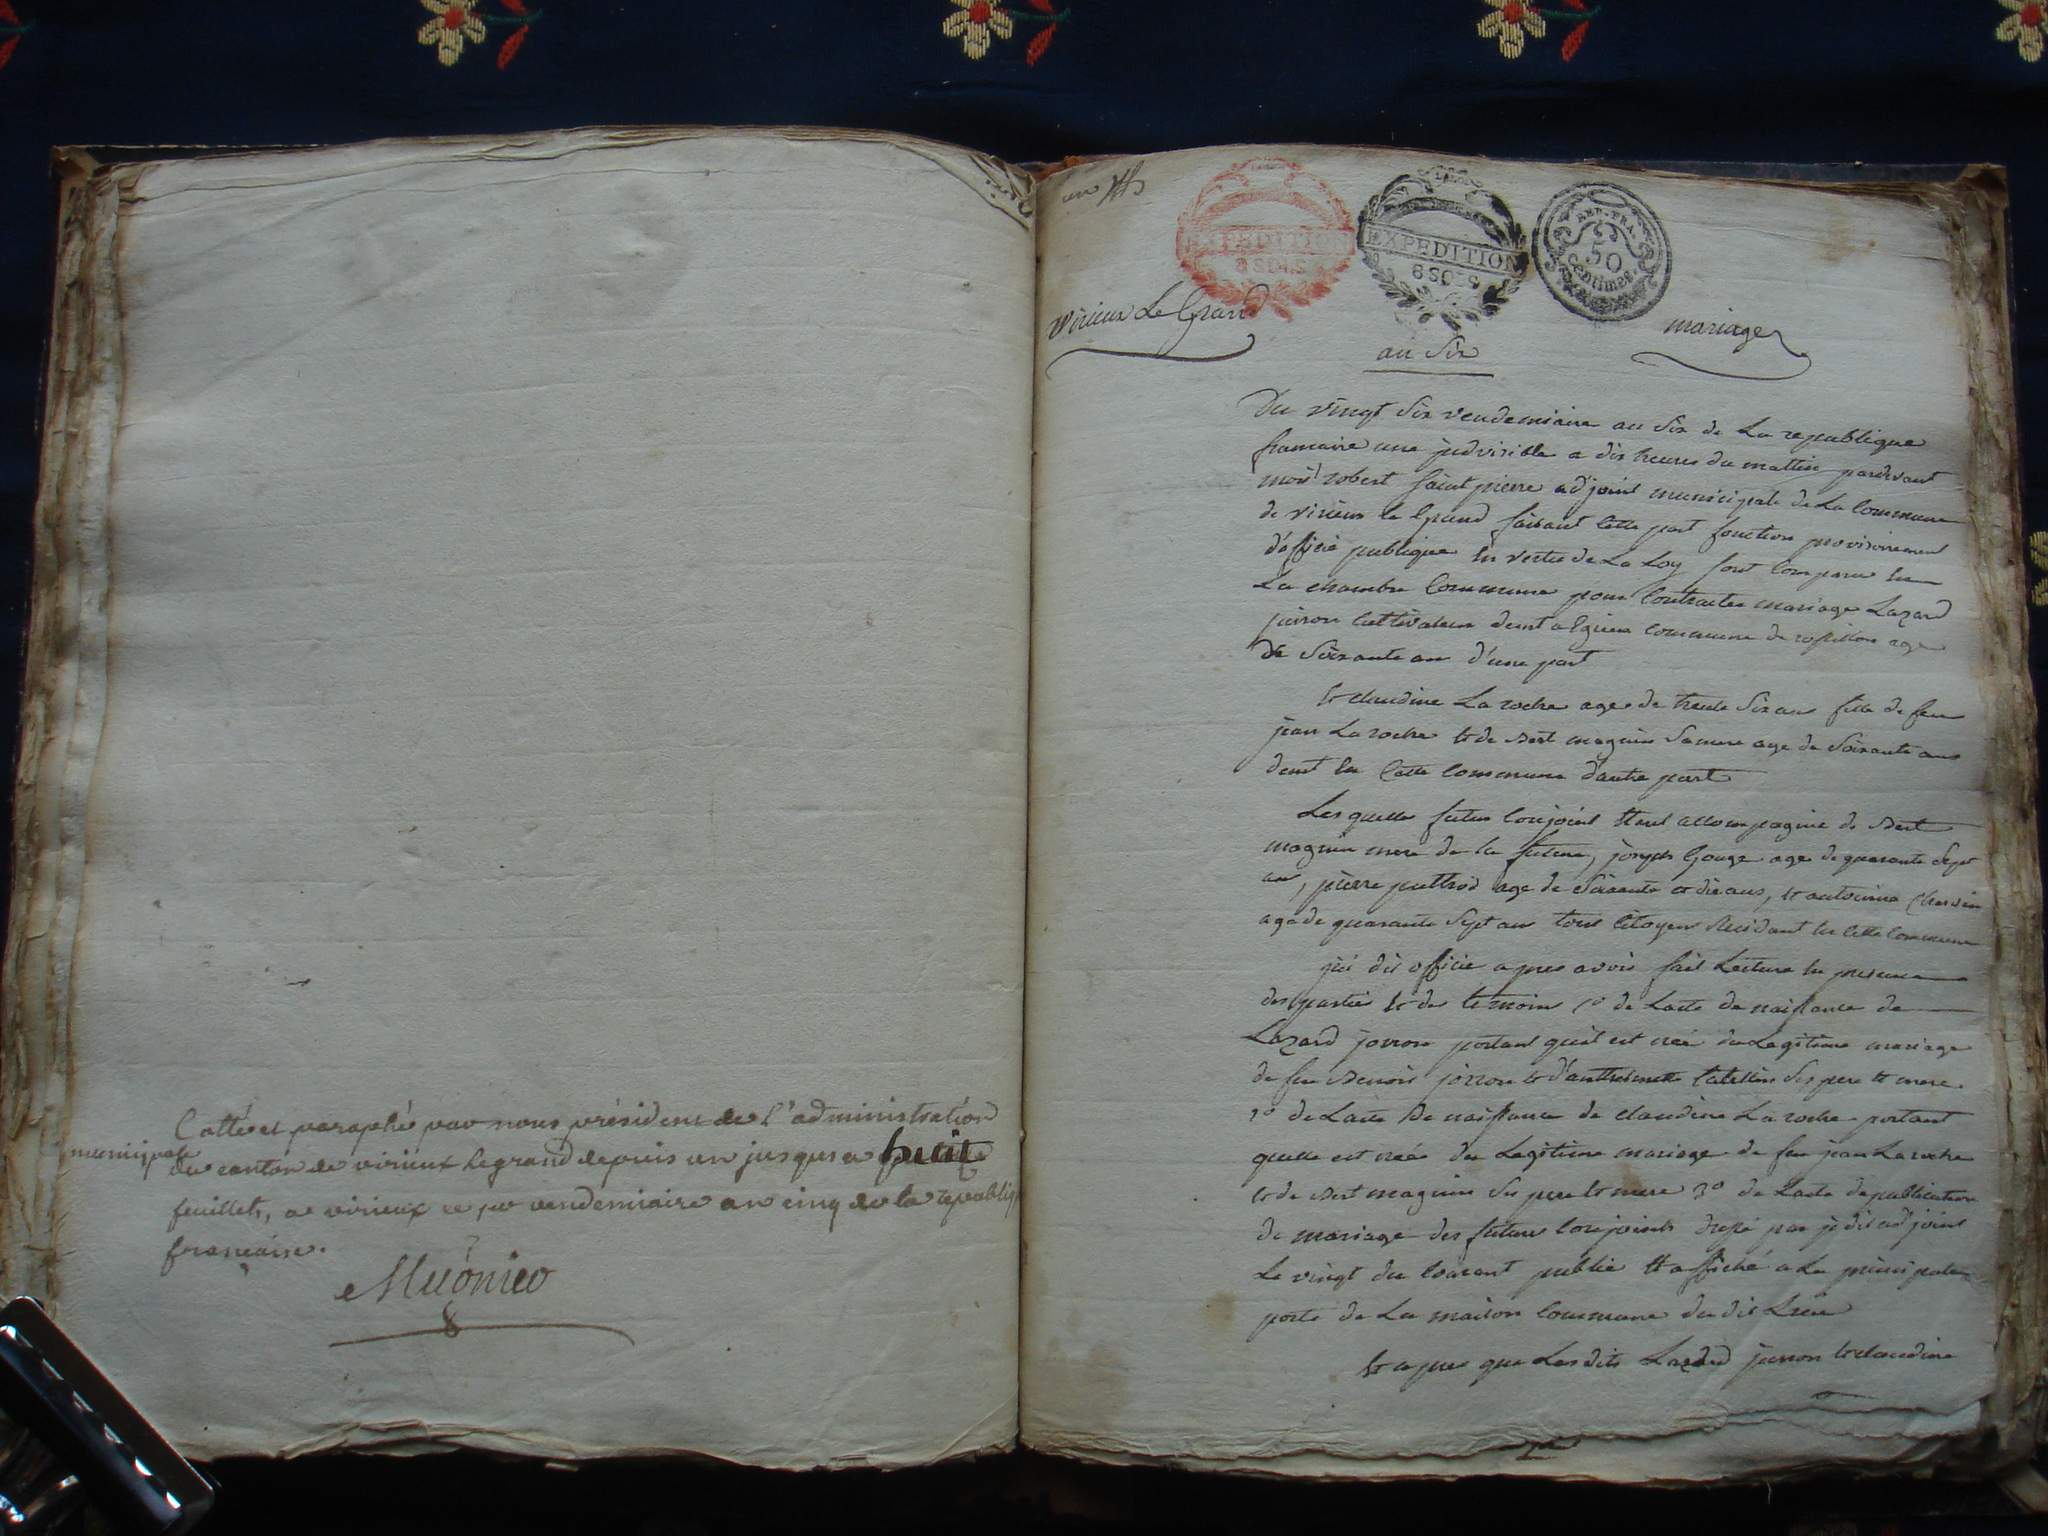 Cotté et paraphé par nous président de l'administration
municipale
du canton de virieux legrand depuis un jusques a huit
feuillets, a virieux ce per vendemiaire an cinq de la republiq
française.
un
EXPEDITION
8 SOLS
EXPEDITION
8 SOLS
REP. FRA.
50
Centimes
Virieux Le Grand
mariage
an Six
Du vingt Six vendemiaire an Six de La republique
francaise une jndvisible a dix heures du mattin pardevant
moi robert Saint pierre adjoint municipale de La Commune
de virieux le Grand faisant Cette part fonction provisoirement
d'officié publique En vertu de La Loy sont Comparu En
La chambre Commune pour Contracter mariage Lazard
Cultivateur demt a commune de age
de Soixante an d'une part
Et claudine La roche age de trente Six an fille de feu
jean La roche Et de magnin Sa mere age de Soixante ans
demt En Cette Commune d'autre part
Lesquelle futur Conjoint Etant accompagnie de
magnin mere de la future, joseph Gouge age de quarante Sept
an, pierre age de Soixante et dix ans, Et antoinne
age de quarante Sept an tous Citoyen Residant En Cette Commune
dit officié apres avoir fait Lecture En presence
des partie Et de temoin 1o de Lacte de naissance de
Lazard portant quil est née du Legitime mariage
de feu Benoit Et d'anthelmette Ses pere Et mere
2o de Lacte De naissance de claudine La roche portant
quelle est née du Legitime mariage de feu jean La roche
Et de magnin Ses pere Et mere 3o de Lacte de publication
de mariage des future Conjoints par adjoint
Le vingt du Courant publié Et affiché a La principale
porte de La maison Commune du dit Lieu
Et apres que Lesdits Lazard Et claudine